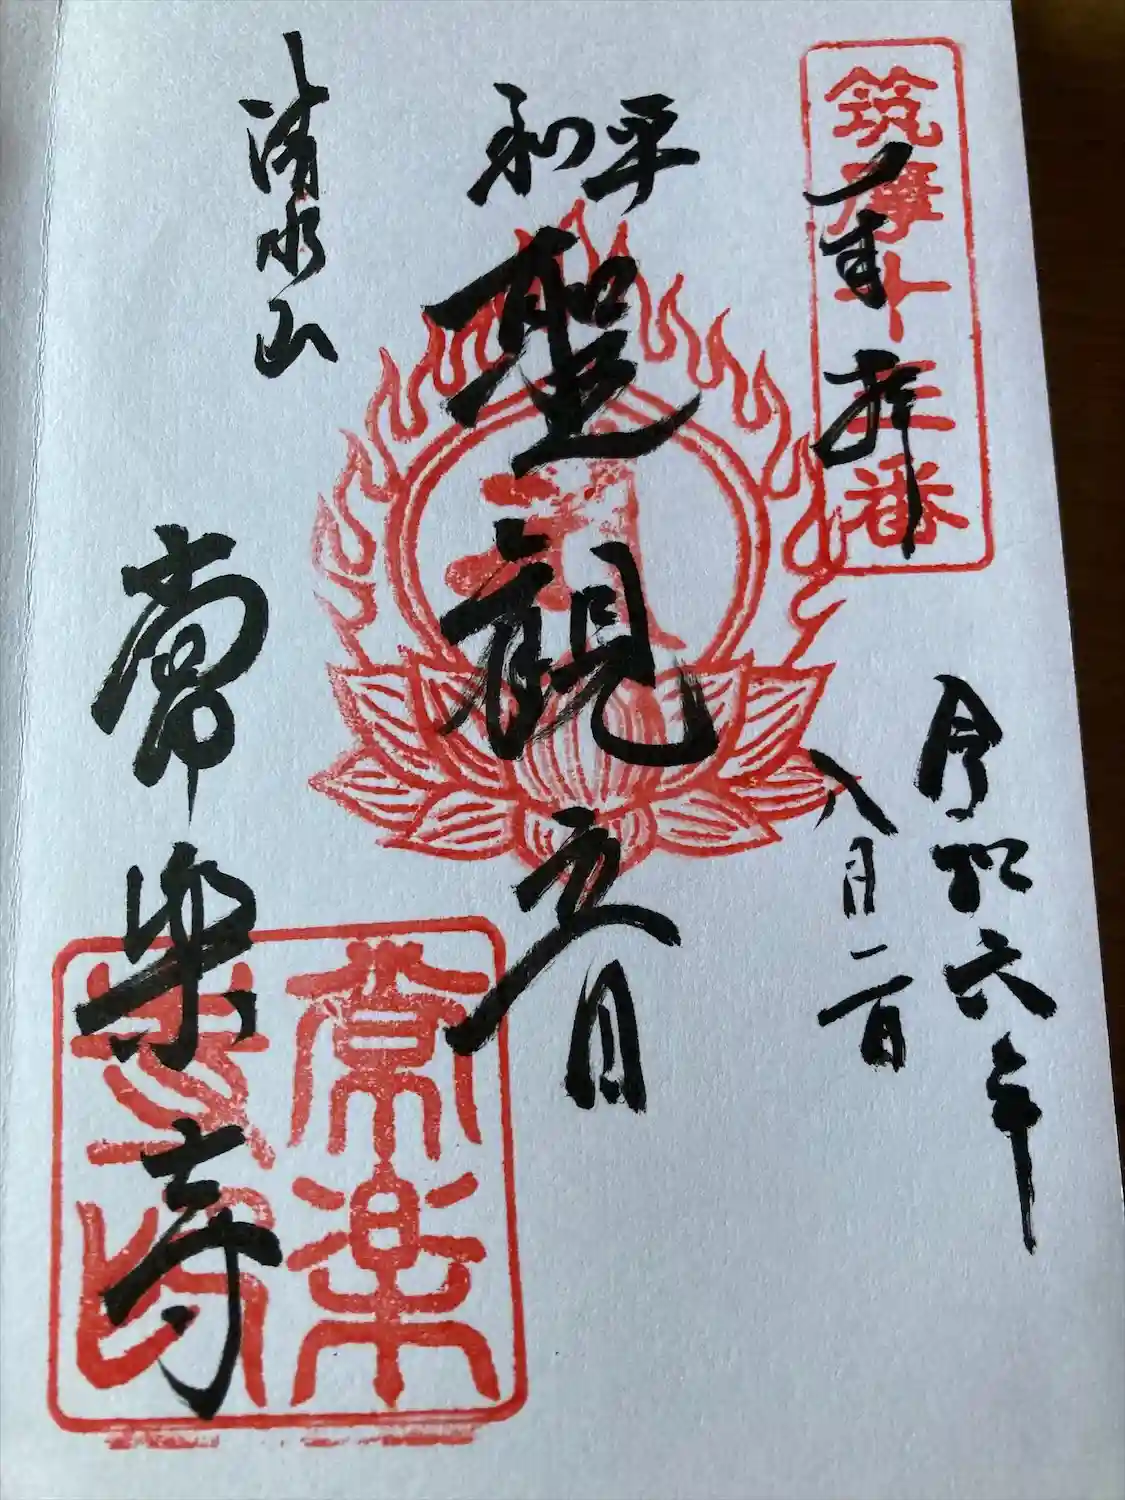 筑摩卅三番
奉拝
令和六年
八月二日
平和
聖観音
清水山
常楽寺
常楽
寺印